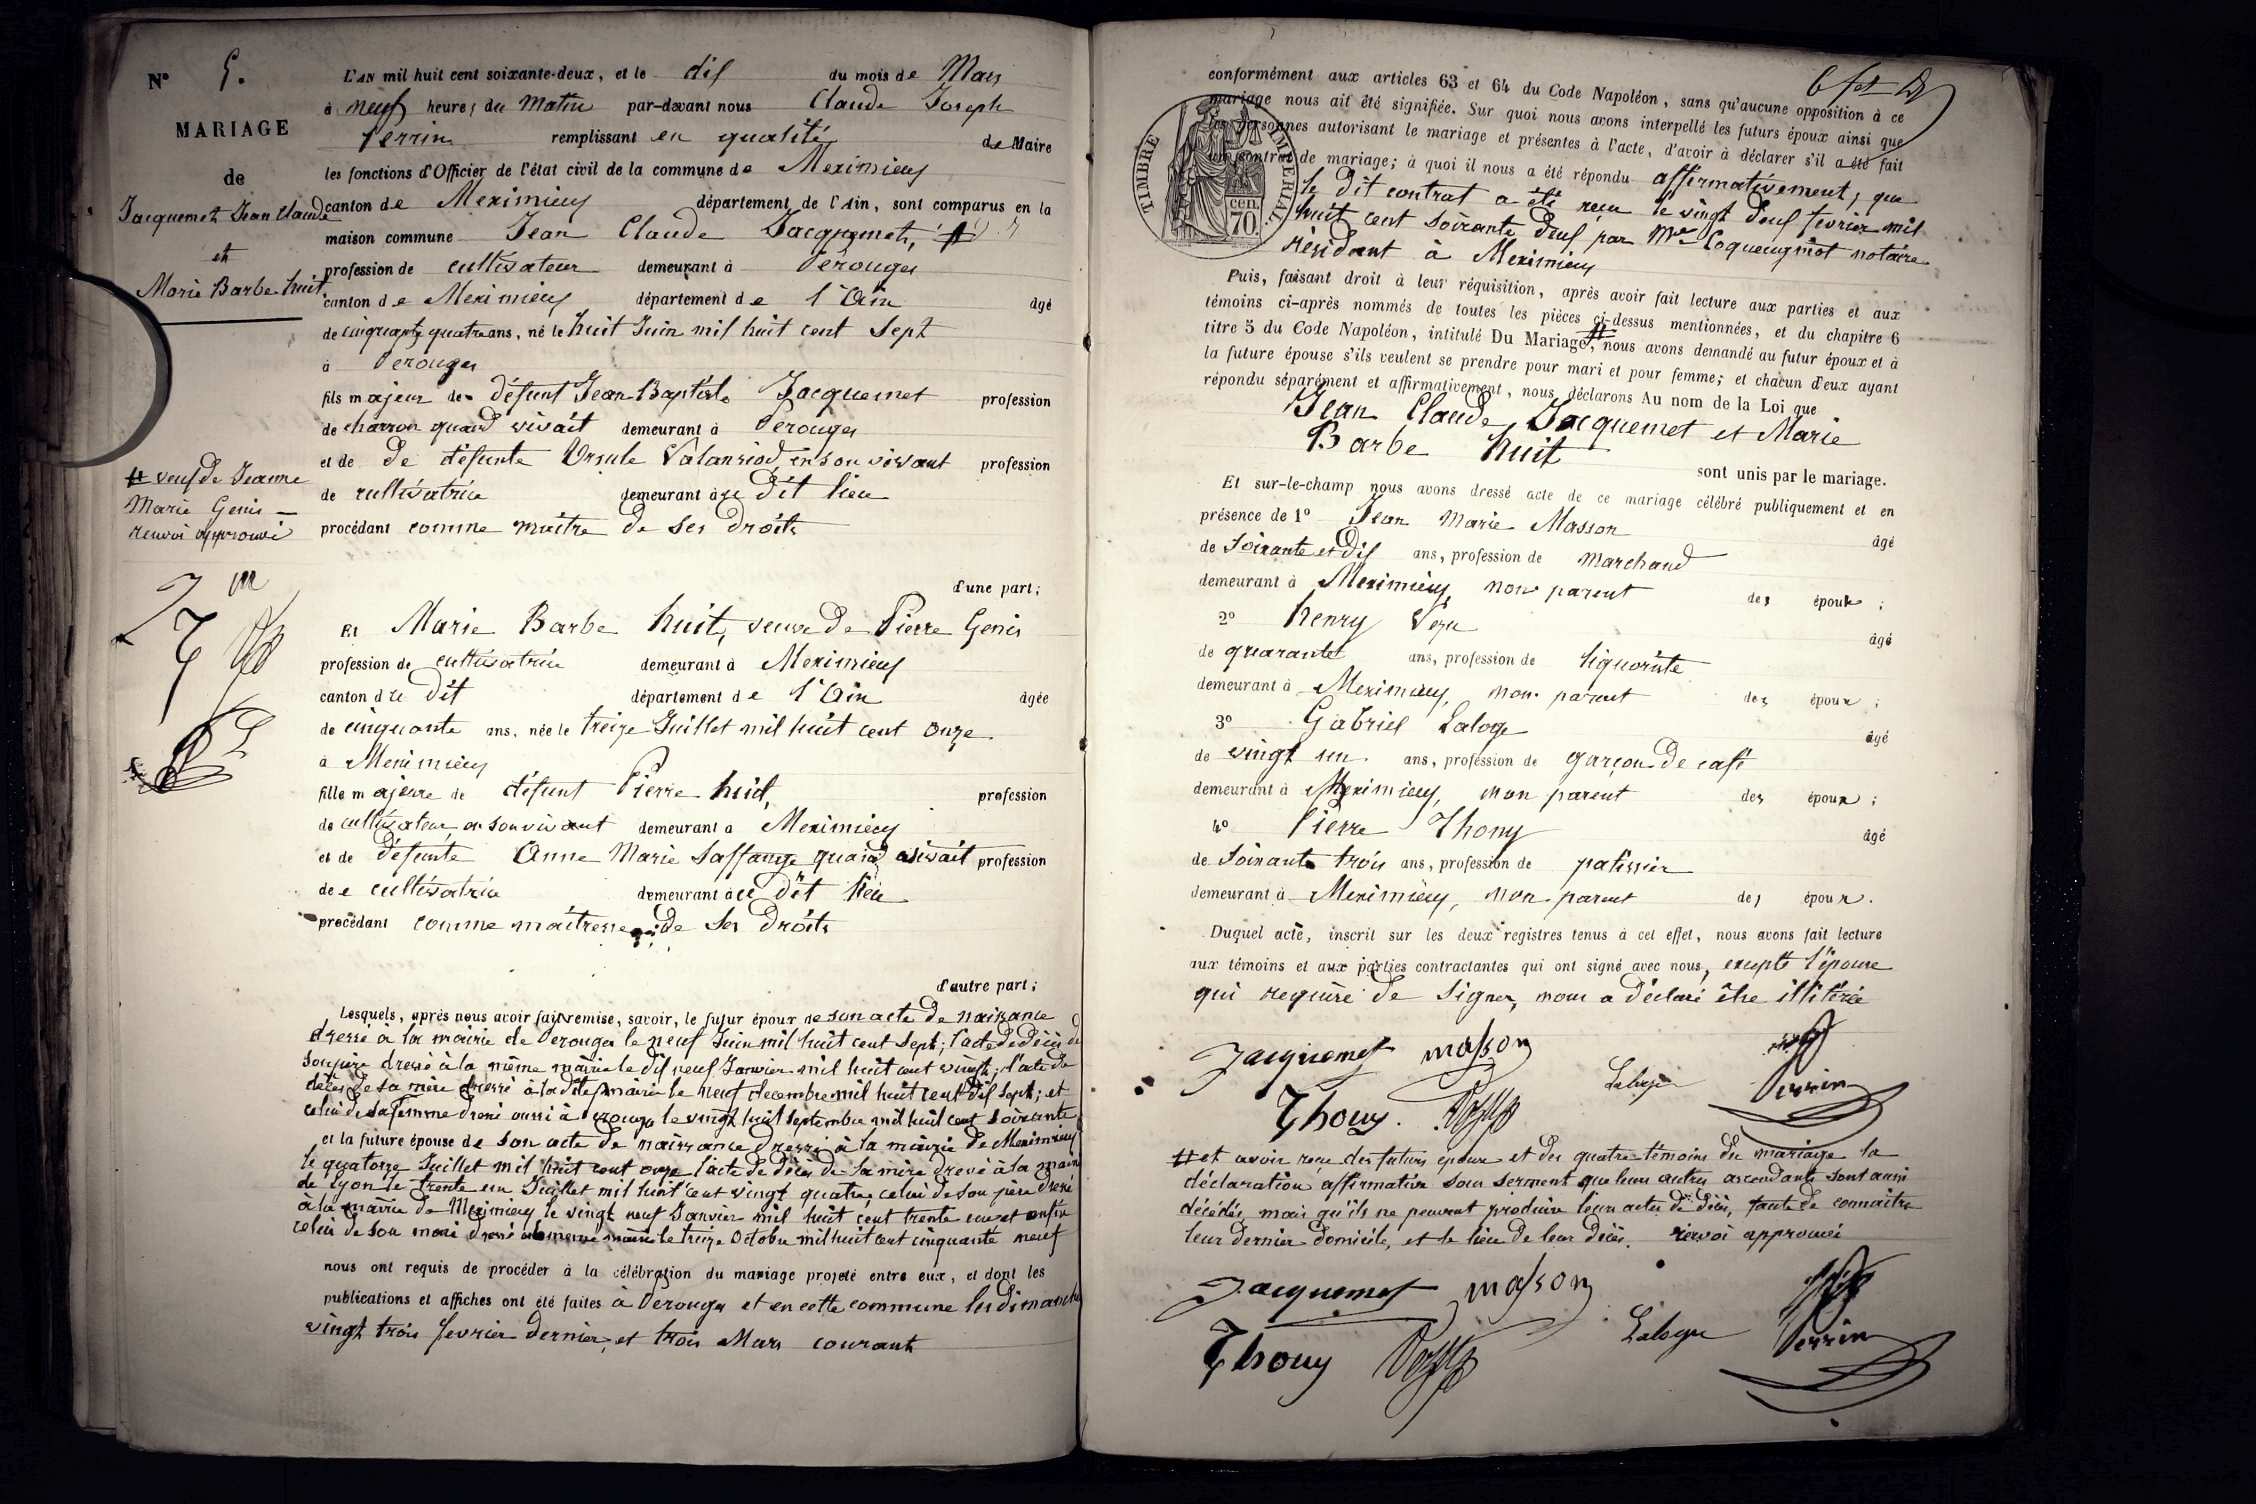 N° 5.
MARIAGE
de
Jacquemet Jean Claude
et
Marie Barbe huit
# veuf de Jeanne
Marie Genis —
renvoi approuvé
L'AN mil huit cent soixante-deux, et le dix du mois de Mars
à neuf heures du Matin par-devant nous Claude Joseph
Perrin remplissant en qualité de Maire
les fonctions d'Officier de l'état civil de la commune de Meximieux
canton de Meximieux département de l'Ain, sont comparus en la
maison commune Jean Claude Jacquemet, #
profession de cultivateur demeurant à Pérouges
canton de Meximieux département de l'Ain âgé
de cinquante quatre ans, né le huit Juin mil huit cent sept
à Pérouges
fils majeur de défunt Jean Baptiste Jacquemet profession
de charron quand vivait demeurant à Pérouges
et de de défunte Ursule Valansiod, en son vivant profession
de cultivatrice demeurant à ce dit lieu
procédant comme maître de ses droits
d'une part;
Et Marie Barbe huit, veuve de Pierre Genis
profession de cultivatrice demeurant à Meximieux
canton du dit département de l'Ain âgée
de cinquante ans, née le treize Juillet mil huit cent onze
à Meximieux
fille majeure de défunt Pierre huit, profession
de cultivateur en son vivant demeurant à Meximieux
et de défunte Anne Marie Laffange quand vivait profession
de cultivatrice demeurant à ce dit lieu
procédant comme maîtresse de ses droits
d'autre part;
Lesquels, après nous avoir fait remise, savoir, le futur époux de son acte de naissance
dressé à la mairie de Pérouges le neuf Juin mil huit cent sept; l'acte de décès de
son père dressé à la même mairie le dix neuf Janvier mil huit cent vingt; l'acte de
décès de sa mère dressé à la dite mairie le neuf decembre mil huit cent dix sept; et
celui de sa femme dressé aussi à Pérouges le vingt huit septembre mil huit cent soixante
et la future épouse de son acte de naissance dressé à la mairie de Meximieux
le quatorze Juillet mil huit cent onze l'acte de décès de sa mère dressé à la mairie
de Lyon le trente un Juillet mil huit cent vingt quatre, celui de son père dressé
à la mairie de Meximieux le vingt neuf Janvier mil huit cent trente un et enfin
celui de son mari dressé à la même mairie le treize Octobre mil huit cent cinquante neuf
nous ont requis de procéder à la célébration du mariage projeté entre eux, et dont les
publications et affiches ont été faites à Pérouges et en cette commune les dimanches
vingt trois fevrier dernier, et trois Mars courant
conformément aux articles 63 et 64 du Code Napoléon, sans qu'aucune opposition à ce
mariage nous ait été signifiée. Sur quoi nous avons interpellé les futurs époux ainsi que
les personnes autorisant le mariage et présentes à l'acte, d'avoir à déclarer s'il a été fait
un contrat de mariage; à quoi il nous a été répondu affirmativement, que
le dit contrat a été reçu le vingt deux fevrier mil
huit cent soixante deux par Me Coqueugniot notaire
résidant à Meximieux
TIMBRE IMPÉRIAL.
cen. 70.
Puis, faisant droit à leur réquisition, après avoir fait lecture aux parties et aux
témoins ci-après nommés de toutes les pièces ci-dessus mentionnées, et du chapitre 6
titre 5 du Code Napoléon, intitulé Du Mariage, # nous avons demandé au futur époux et à
la future épouse s'ils veulent se prendre pour mari et pour femme; et chacun d'eux ayant
répondu séparément et affirmativement, nous déclarons Au nom de la Loi que
Jean Claude Jacquemet et Marie
Barbe huit
sont unis par le mariage.
Et sur-le-champ nous avons dressé acte de ce mariage célébré publiquement et en
présence de 1° Jean Marie Masson âgé
de soixante et dix ans, profession de marchand
demeurant à Meximieux, non parent des époux;
2° henry âgé
de quarante ans, profession de liquoriste
demeurant à Meximieux, non parent des époux;
3° Gabriel Laloge âgé
de vingt un ans, profession de garçon de café
demeurant à Meximieux, non parent des époux;
4° Pierre Thony âgé
de soixante trois ans, profession de patissier
demeurant à Meximieux, non parent des époux.
Duquel acte, inscrit sur les deux registres tenus à cet effet, nous avons fait lecture
aux témoins et aux parties contractantes qui ont signé avec nous, excepté l'épouse
qui requise de signer, nous a déclaré être illitérée
Jacquemet masson
Laloge Perrin
Thony
# et avoir reçu des futurs époux et des quatre témoins du mariage la
déclaration affirmative sous serment que leurs autres ascendants sont aussi
décédés mais qu'ils ne peuvent produire leurs actes de décès, faute de connaître
leur dernier domicile, et le lieu de leur décès. renvoi approuvé
Jacquemet masson
Laloge Perrin
Thony